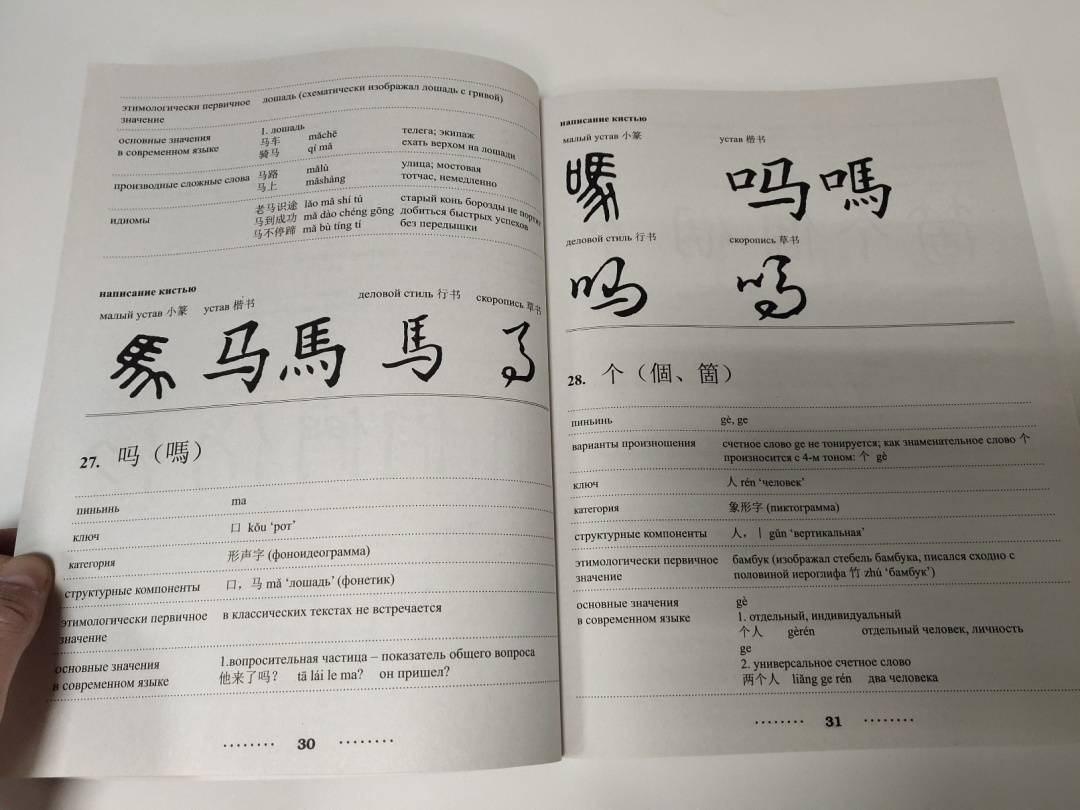 этимологически первичное значение лошадь (схематически изображал лошадь с гривой)
основные значения в современном языке 1. лошадь
马车 mǎchē телега; экипаж
骑马 qí mǎ ехать верхом на лошади
производные сложные слова 马路 mǎlù улица; мостовая
马上 mǎshàng тотчас, немедленно
идиомы 老马识途 lǎo mǎ shí tú старый конь борозды не портит
马到成功 mǎ dào chéng gōng добиться быстрых успехов
马不停蹄 mǎ bù tíng tí без передышки
написание кистью
малый устав 小篆 устав 楷书 деловой стиль 行书 скоропись 草书
馬 马 馬 馬 马
27. 吗（嗎）
пиньинь ma
ключ 口 kǒu ‘рот’
категория 形声字 (фоноидеограмма)
структурные компоненты 口，马 mǎ ‘лошадь’ (фонетик)
этимологически первичное значение в классических текстах не встречается
основные значения в современном языке 1.вопросительная частица – показатель общего вопроса
他来了吗？ tā lái le ma? он пришел?
30
написание кистью
малый устав 小篆 устав 楷书
嗎 吗 嗎
деловой стиль 行书 скоропись 草书
吗 吗
28. 个（個、箇）
пиньинь gè, ge
варианты произношения счетное слово ge не тонируется; как знаменательное слово 个
произносится с 4-м тоном: 个 gè
ключ 人 rén ‘человек’
категория 象形字 (пиктограмма)
структурные компоненты 人，丨 gǔn ‘вертикальная’
этимологически первичное значение бамбук (изображал стебель бамбука, писался сходно с
половиной иероглифа 竹 zhú ‘бамбук’)
основные значения в современном языке gè
1. отдельный, индивидуальный
个人 gèrén отдельный человек, личность
ge
2. универсальное счетное слово
两个人 liǎng ge rén два человека
31